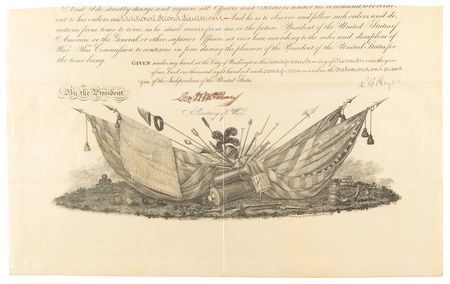 And I do strictly charge, and require all Officers and Soldiers under his command, to be obedi-
ent to his orders as Additional Second Lieutenant And he is to observe and follow such orders and di-
rections, from time to time, as he shall receive from me, or the future President of the United States of
America, or the General, or other superior Officers set over him, according to the rules and discipline of
War. This Commission to continue in force during the pleasure of the President of the United States, for
the time being.
GIVEN under my hand, at the City of Washington, this day of November in the year
of our Lord, one thousand eight hundred and seventy seven and in the one hundred and second
year of the Independence of the United States.
By the President.
R B Hayes
Geo W McCrary
Secretary of War.